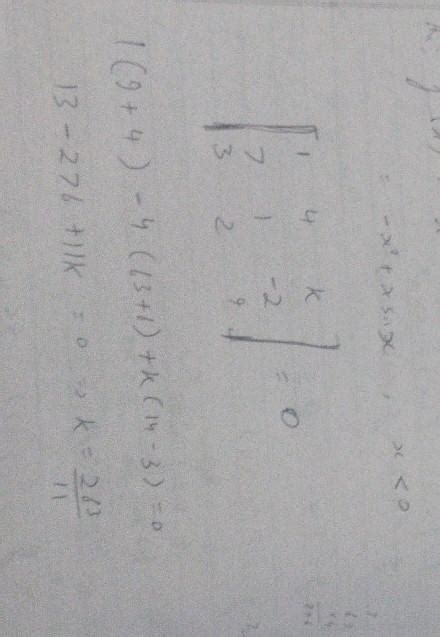 = -x² + x sin x , x < 0
| 1 4 k |
| 7 1 -2 | = 0
| 3 2 9 |
1(9+4) - 4(63+1) + k(14-3) = 0
13 - 276 + 11k = 0 ⇒ k = 263/11